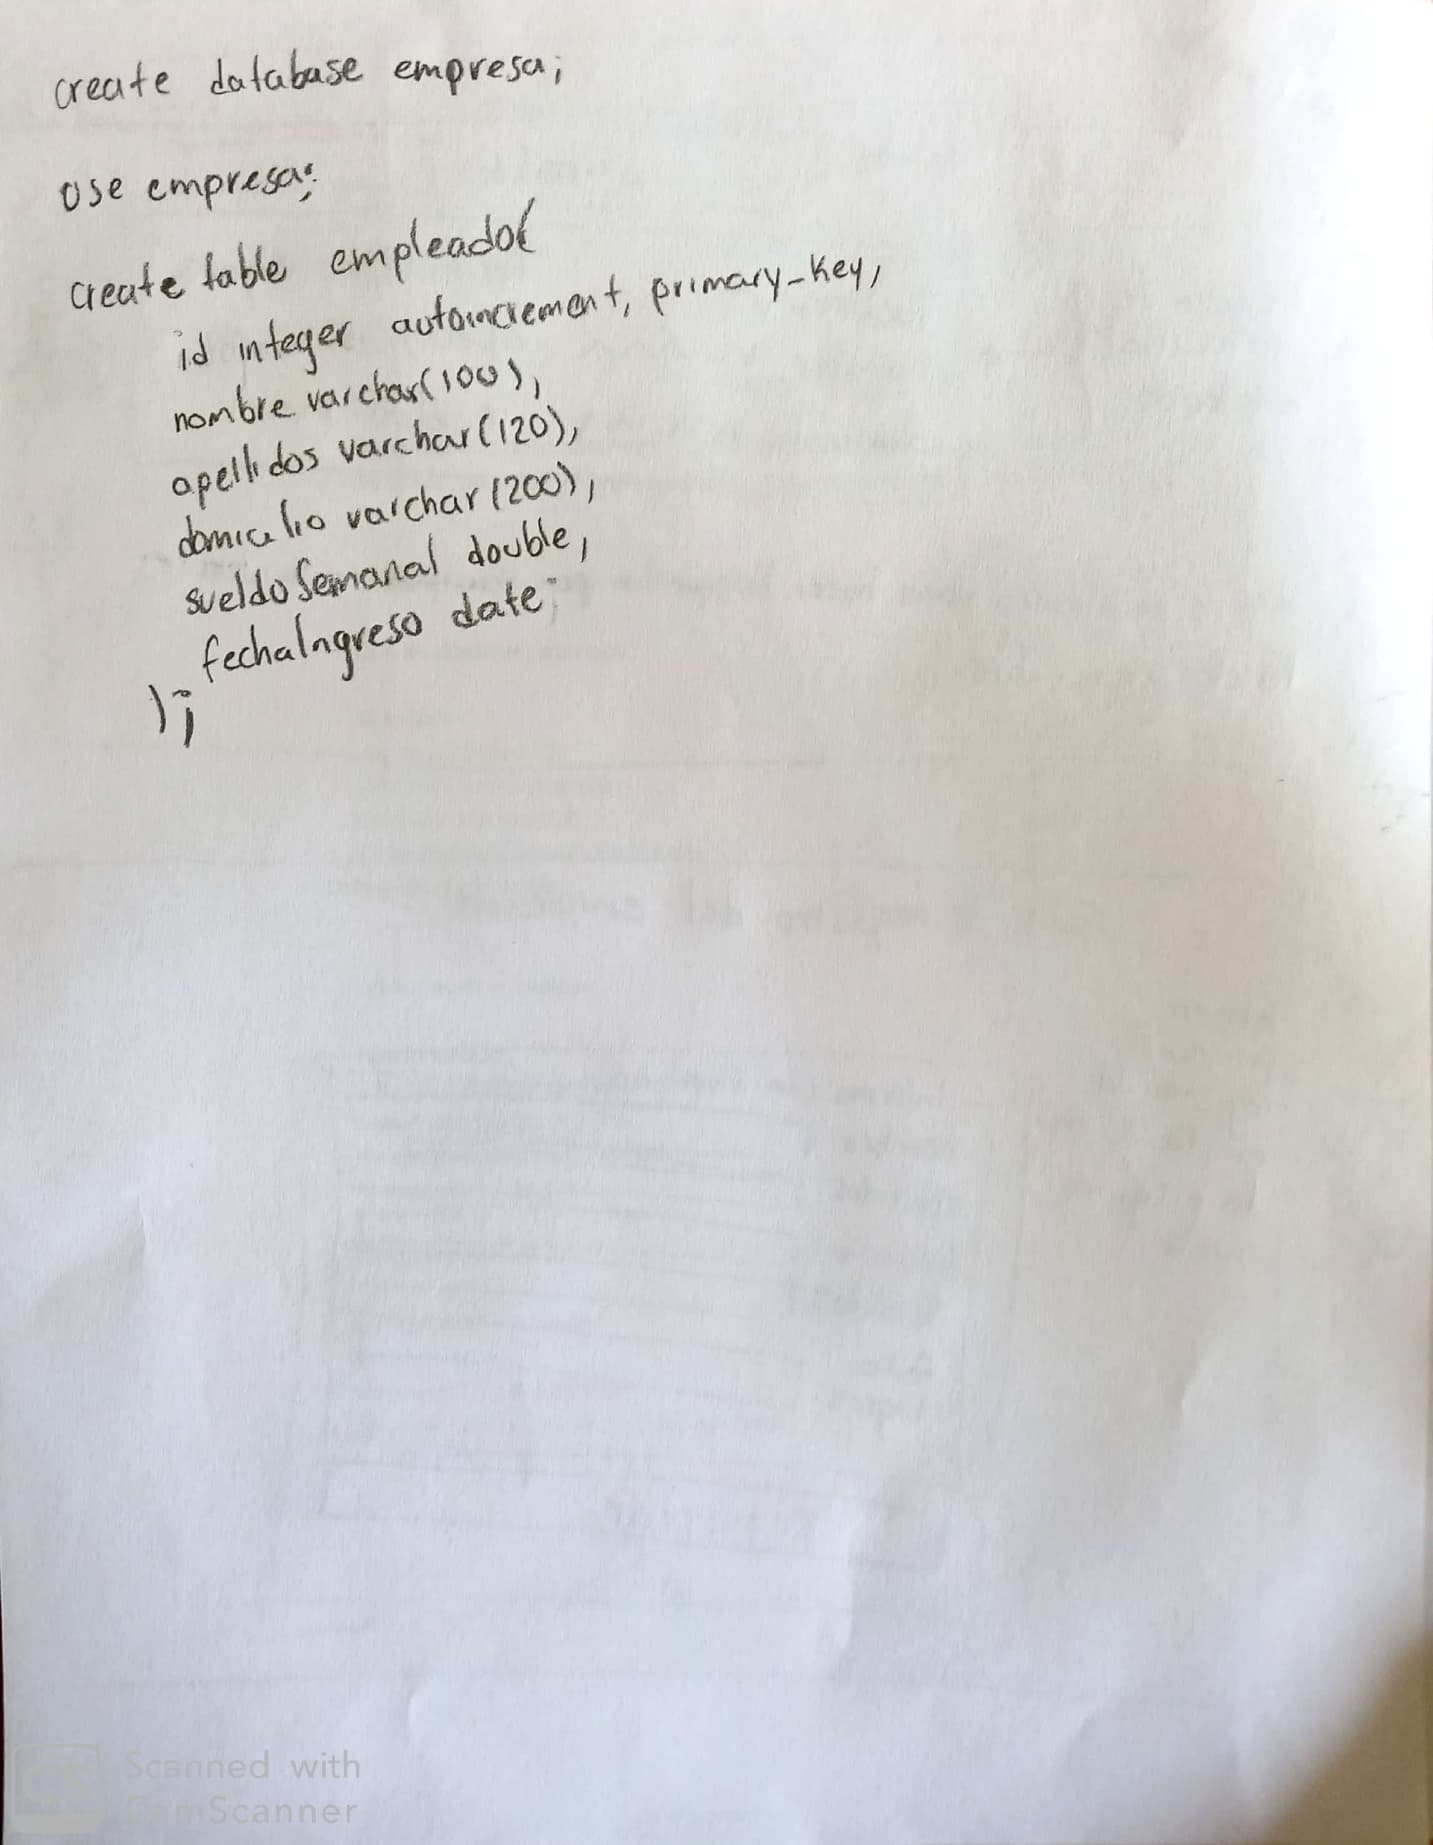 create database empresa;
use empresa;
create table empleado(
id integer autoincrement, primary-key,
nombre varchar(100),
apellidos varchar(120),
domicilio varchar(200),
sueldoSemanal double,
fechaIngreso date;
);
Scanned with
CamScanner